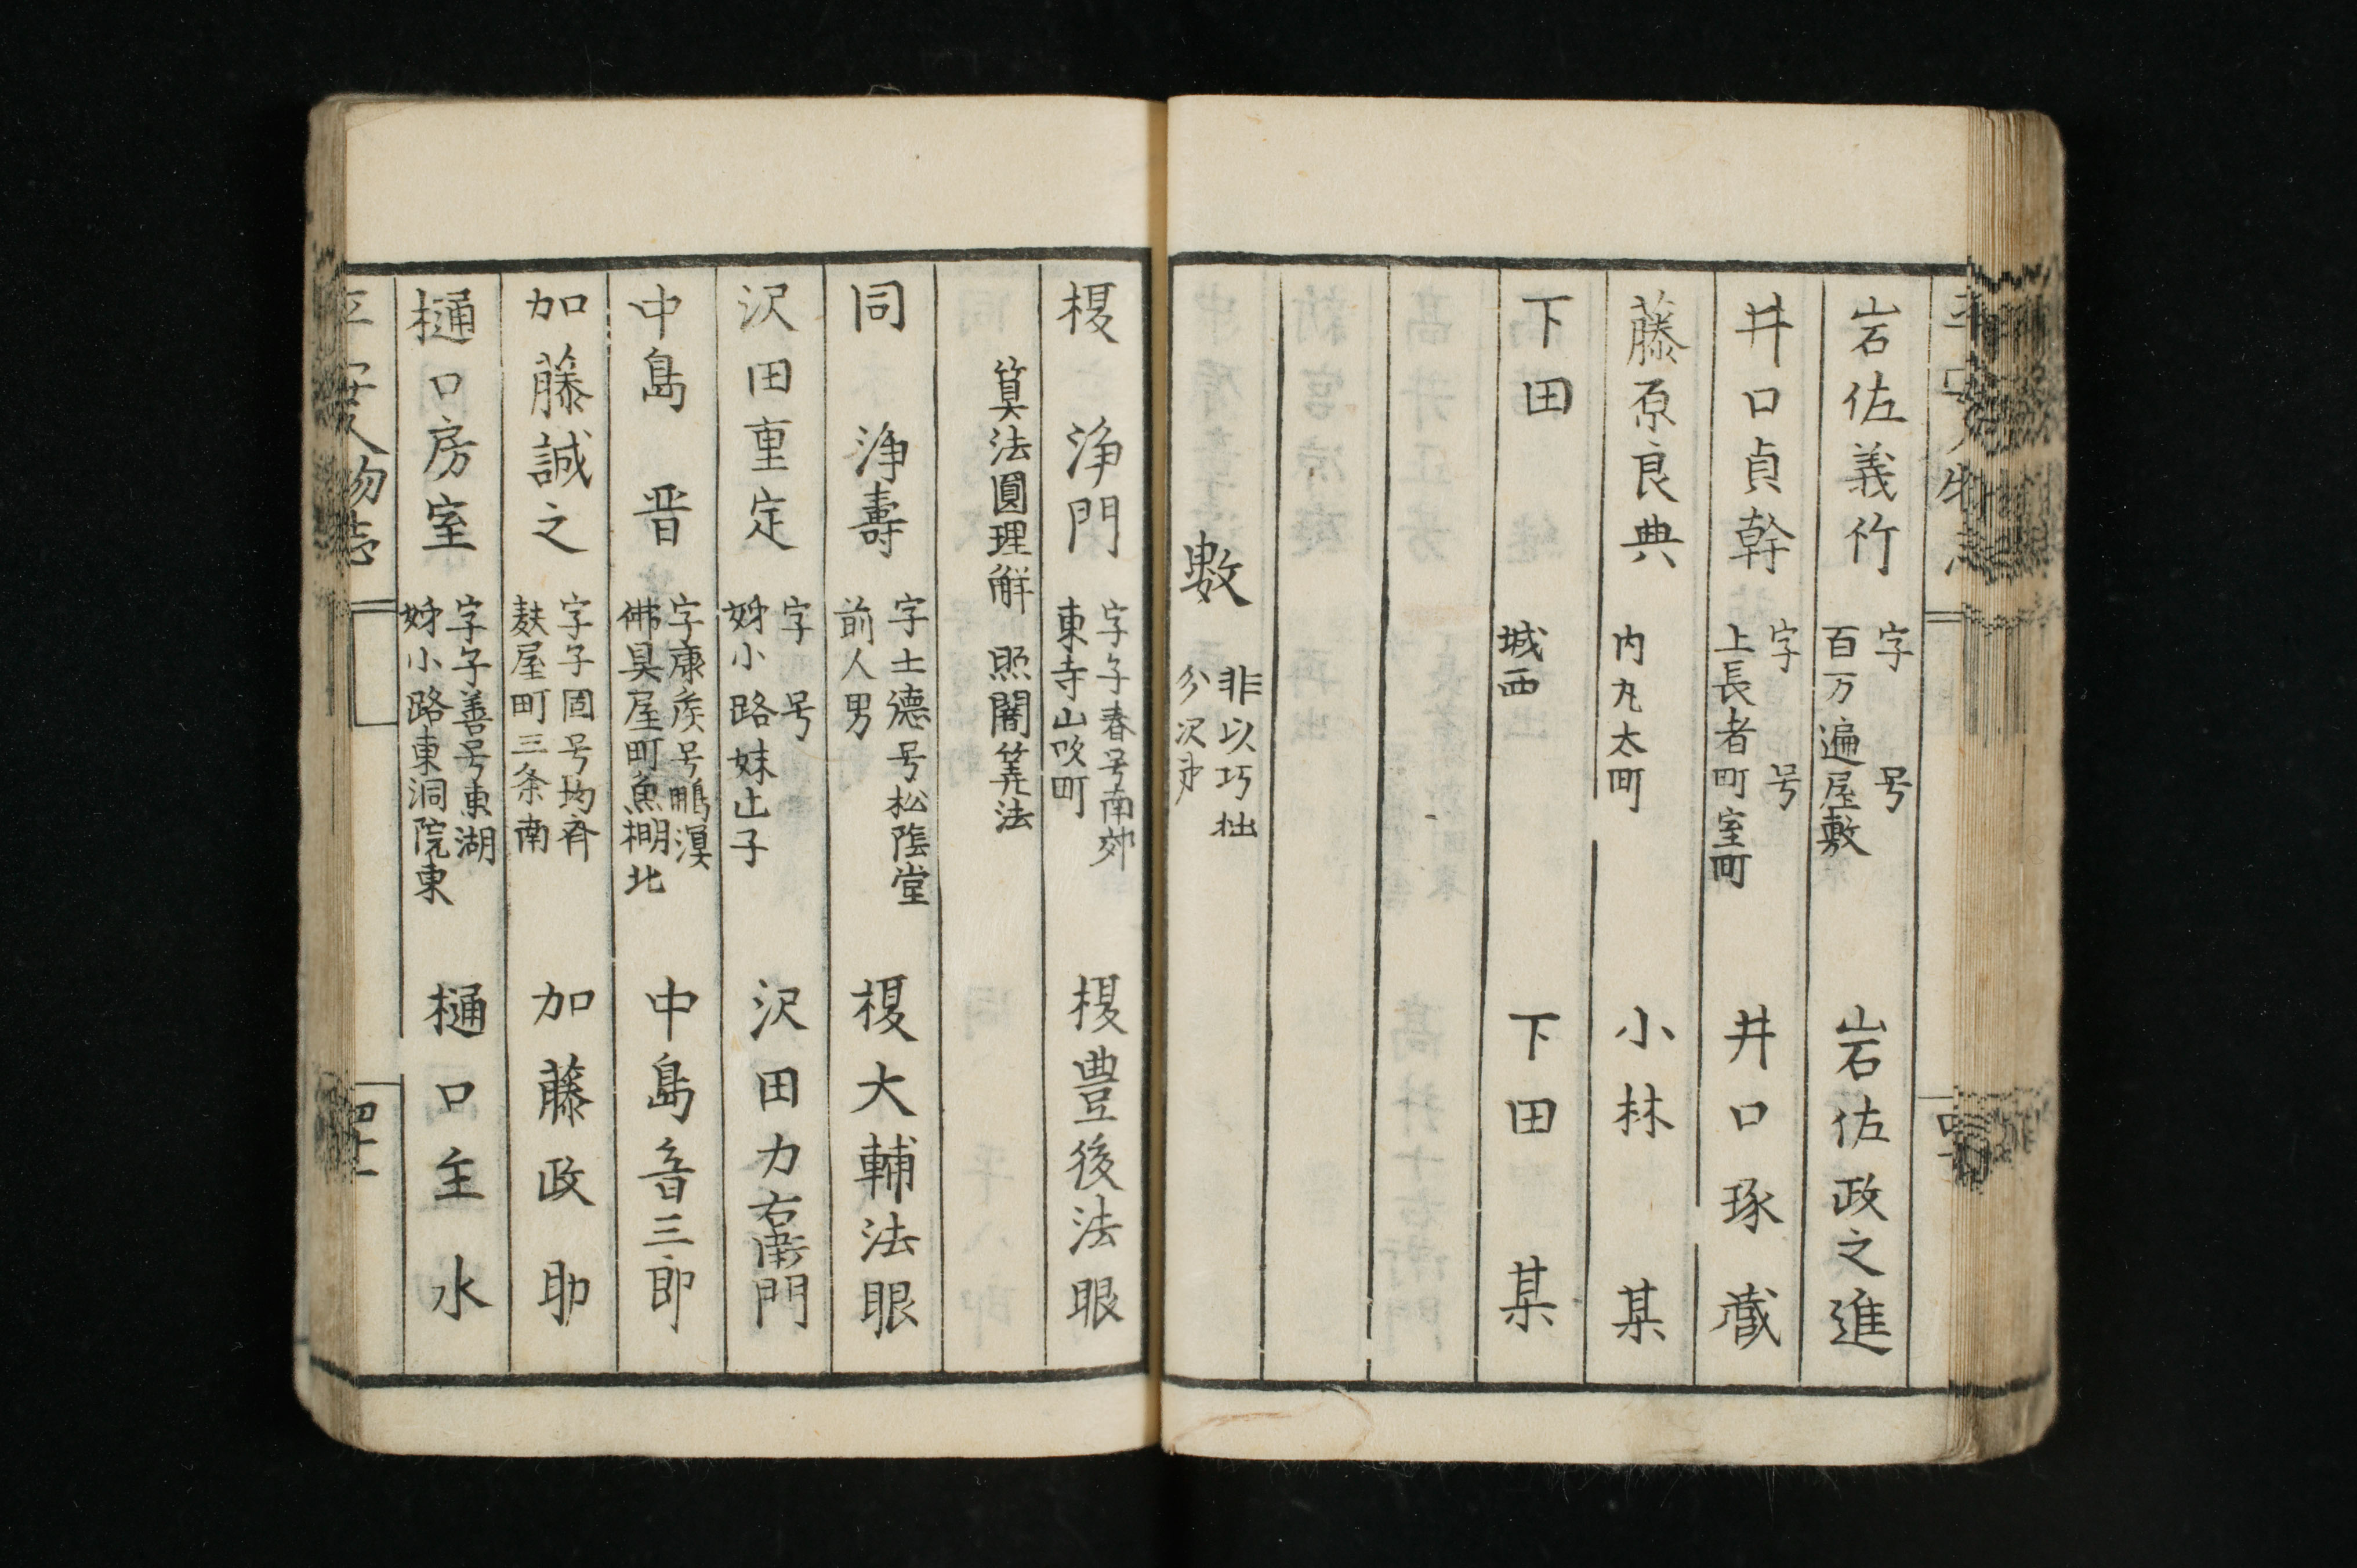 岩佐義竹 字 号 百万遍屋敷 岩佐政之進
井口貞幹 字 号 上長者町室町 井口琢蔵
藤原良典 内丸太町 小林某
下田 城西 下田某
數 非以巧拙分次才
榎浄門 字子春号南郊 東寺山吹町 榎豊後法眼
算法圓理解 照闇筭法
同浄壽 字士德号松蔭堂 前人男 榎大輔法眼
沢田重定 字 号 姉小路妹止子 沢田力右衛門
中島晋 字康侯号鵬溟 佛具屋町魚棚北 中島音三郎
加藤誠之 字子固号均斉 麸屋町三条南 加藤政助
樋口房室 字子善号東湖 姉小路東洞院東 樋口主水
平安人物志
四十一